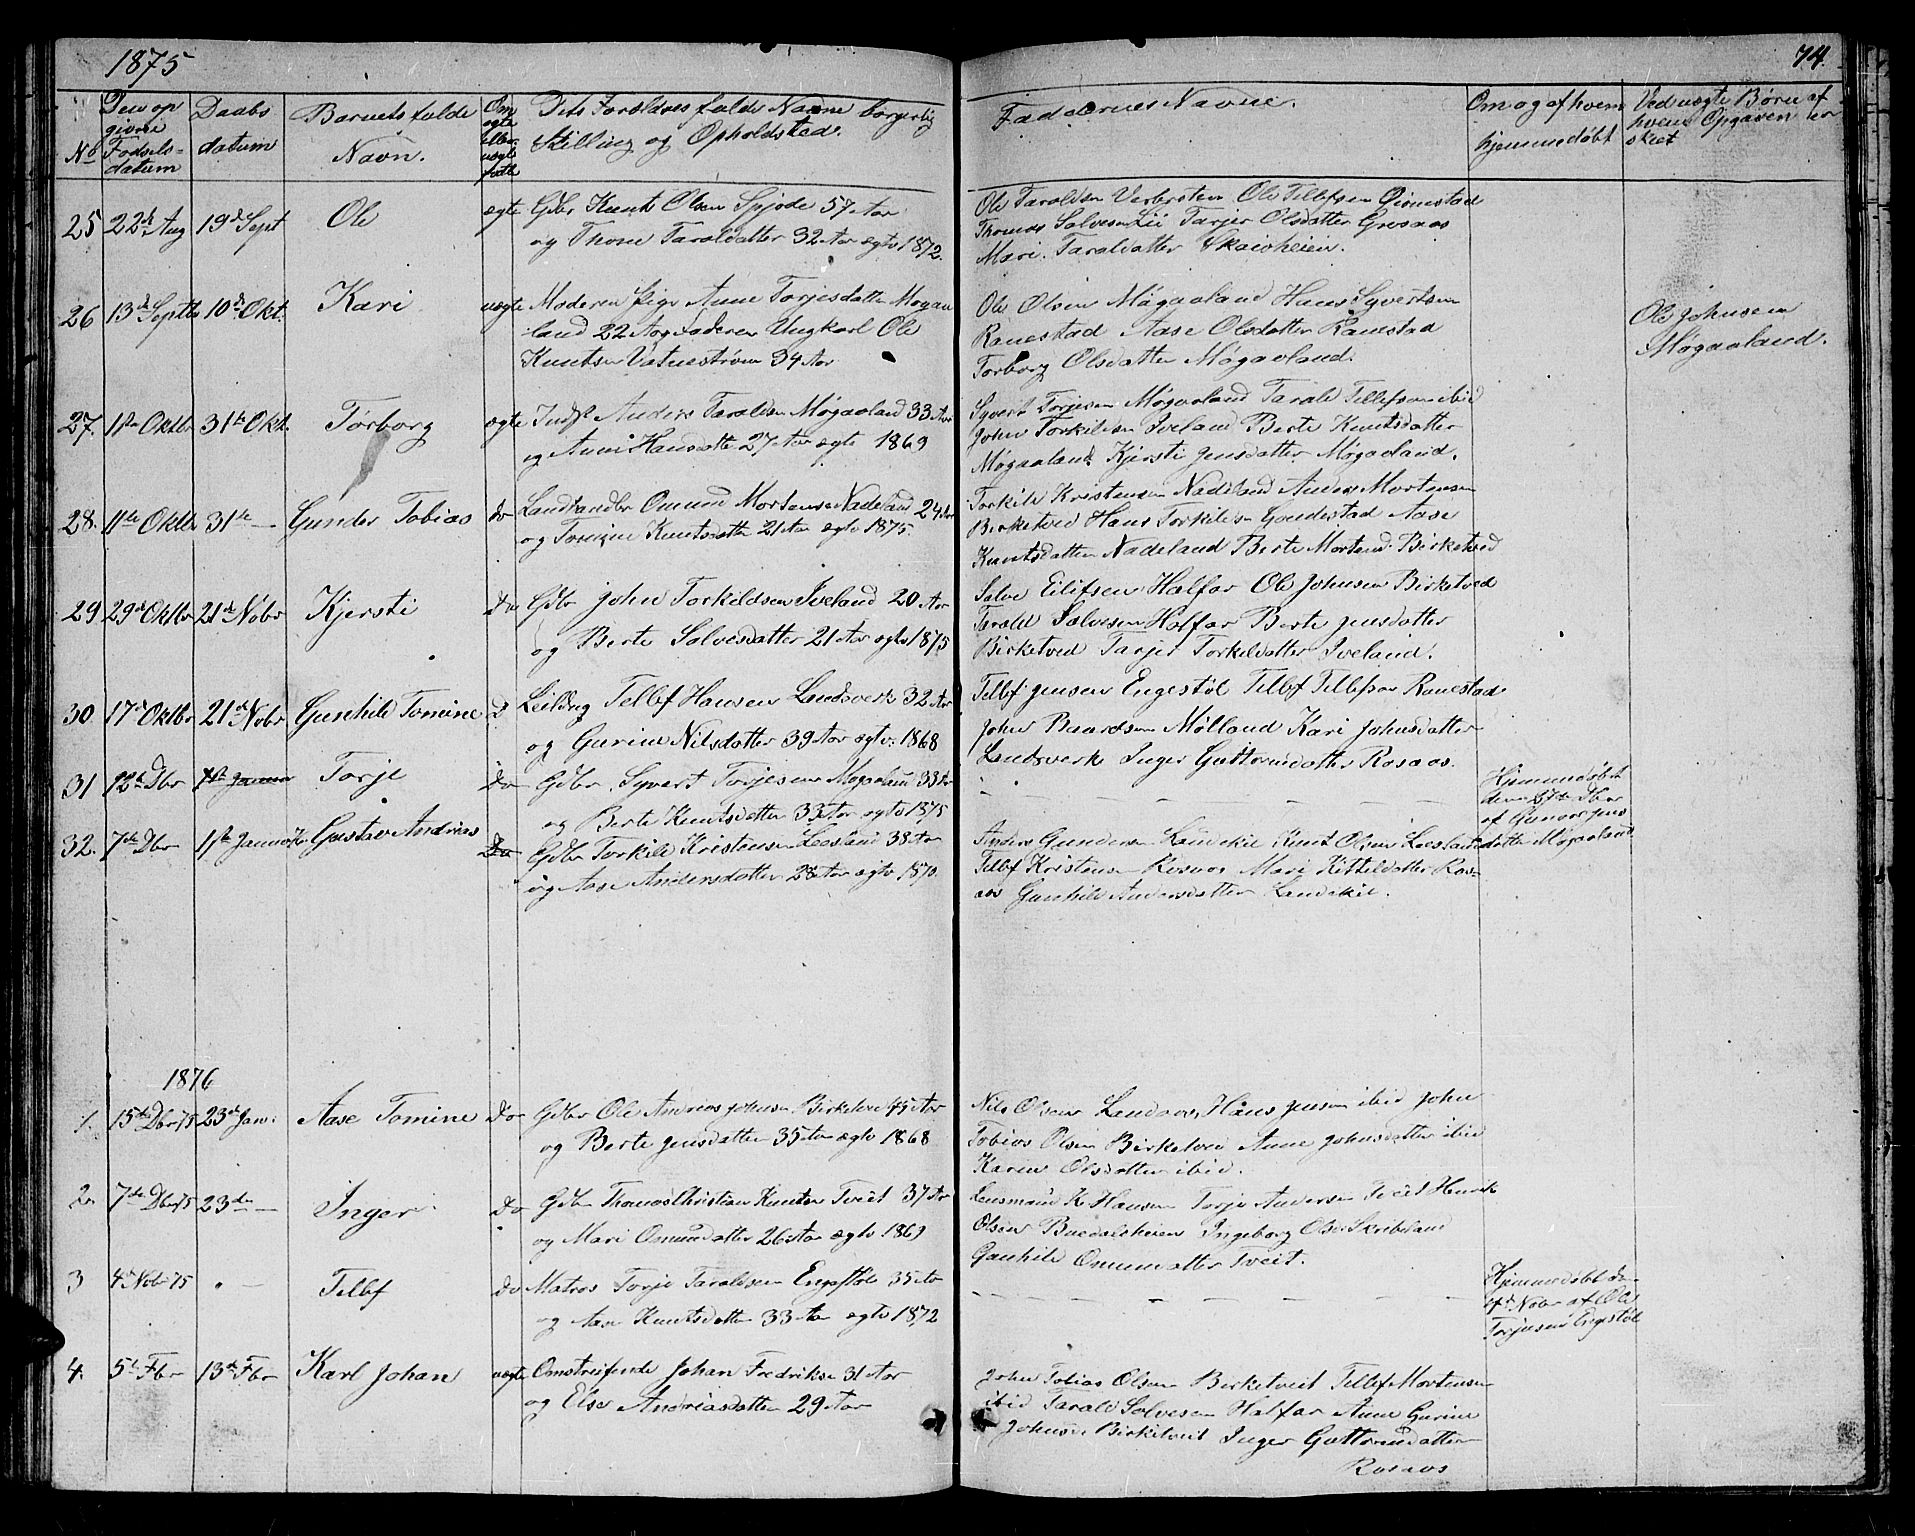 1875
74.
No
Den op
givne
Fødsels-
datum
Daabs
datum
Barnets fulde
Navn.
Om
ægte
eller
uægte
født
Dets Forældres fulde Navne borgerlig
Stilling og Opholdsted.
Faddernes Navne.
Om og af hvem
hjemmedøbt
Ved uægte Børn af
hvem Opgaven er
skeet
25 22de Aug 19de Sept Ole ægte Gdbr Knut Olsen Spjøde 57 Aar
og Thone Taraldatter 32 Aar ægtv 1872.
Ole Taraldsen Verbersten Ole Tellefsen Gjerustad
Thomas Salvesen Lii Tarjer Olsdatter Grosaas
Mari Taraldatter Skaiaheien.
26 13de Septb 10de Okt. Kari uægte Moderen Pige Anne Torjesdatter Møgaa
land 22 Aar Faderen Ungkarl Ole
Knutsen Vatnestrøm 34 Aar
Ole Olsen Møgaaland Hans Syvertsen
Ranestad Aase Olsdatter Ranestad
Torborg Olsdatter Møgaaland.
Ole Johnsen
Møgaaland.
27. 11te Oktbr 31te Okt. Torborg ægte Inds Anders Taraldsen Møgaaland 33 Aar
og Anne Hansdatte 27 Aar ægtv 1869
Syvert Torjesen Møgaaland Tarald Tellefsen ibid
John Torkildsen Iveland Berte Knutsdatter
Møgaaland Kjersti Jensdatter Møgaaland.
28. 11te Oktbr 31te — Gunder Tobias do Landhandler Omund Mortensen Nadeland 24 Aar
og Tomine Knutsdatte 21 Aar ægtv 1875.
Torkild Kristensen Nadeland Anders Mortensen
Birketved Hans Torkildsen Gondestad Aase
Knutsdatter Nadeland Berte Mortensd. Birketved
29 29de Oktbr 21de Nobr Kjersti Do Gdbr John Torkildsen Iveland 20 Aar
og Berte Salvesdatter 21 Aar ægtv 1875
Salve Eilifsen Halfar Ole Johnsen Birketved
Tarald Salvesen Halfar Berte Jensdatter
Birketved Tarjer Torkeldatter Iveland.
30 17de Oktbr 21de Nobr Gunhild Tomine D Leildng Tellef Hansen Landsverk 32 Aar
og Gurine Nilsdatter 39 Aar ægtv: 1868
Tellef Jensen Engestøl Tellef Tellefsen Ranestad
John Baardsen Mølland Kari Johnsdatter
Landsverk Inger Guttormdatter Rosaas.
31 12te Dbr 1ste Januar Torje Do Gdbr Syvert Torjesen Møgaaland 33 Aar
og Berte Knutsdatter 33 Aar ægtv 1875
Hjemmedøbt
den 17de Dbr
af Gunvor Jens
datter Møgaaland
32. 7de Dbr 1ste Januar Gustav Andrias Do Gdbr Torkild Kristensen Leesland 38 Aar
og Aase Andersdatter 28 Aar ægtv 1870.
Anders Gundersen Landekil Knut Olsen Leesland
Tellef Kristensen Rosaas Mari Kittildatter Ros-
aas Gunhild Andersdatter Landekil.
1876
1. 15de Dbr 75 23de Jan: Aase Tomine Do Gdbr Ole Andrias Johnsen Birketved 45 Aar
og Berte Jensdatter 35 Aar ægtv 1868
Nils Olsen Landaas, Hans Jensen ibid John
Tobias Olsen Birketved Anne Johnsdatter ibid
Karen Olsdatter ibid.
2. 7de Dbr 75 23de — Inger Do Gdbr Thomas Christian Knutsen Tveit 37 Aar
og Mari Omundatter 26 Aar ægtv 1869
Lensmand K. Hansen Torje Andersen Tveit Henrik
Olsen Buedalsheien Ingeborg Olsd Skribeland
Gunhild Omundatter Tveit.
3 4de Nobr 75 — Tellef Do Matros Torje Taraldsen Engestøl 35 Aar
og Aase Knutsdatter 33 Aar ægtv 1872
Hjemmedøbt de
Nobr af Ole
Torjusen Engestøl
4. 5te Fbr 13de Fbr Karl Johan uægte Omstreifende Johan Fredriksen 31 Aar
og Else Andriasdatter 29 Aar
John Tobias Olsen Birketveit Tellef Mortensen
ibid Tarald Salvesen Halfar Anne Gurine
Johnsd. Birketveit Inger Guttormdatter
Rosaas